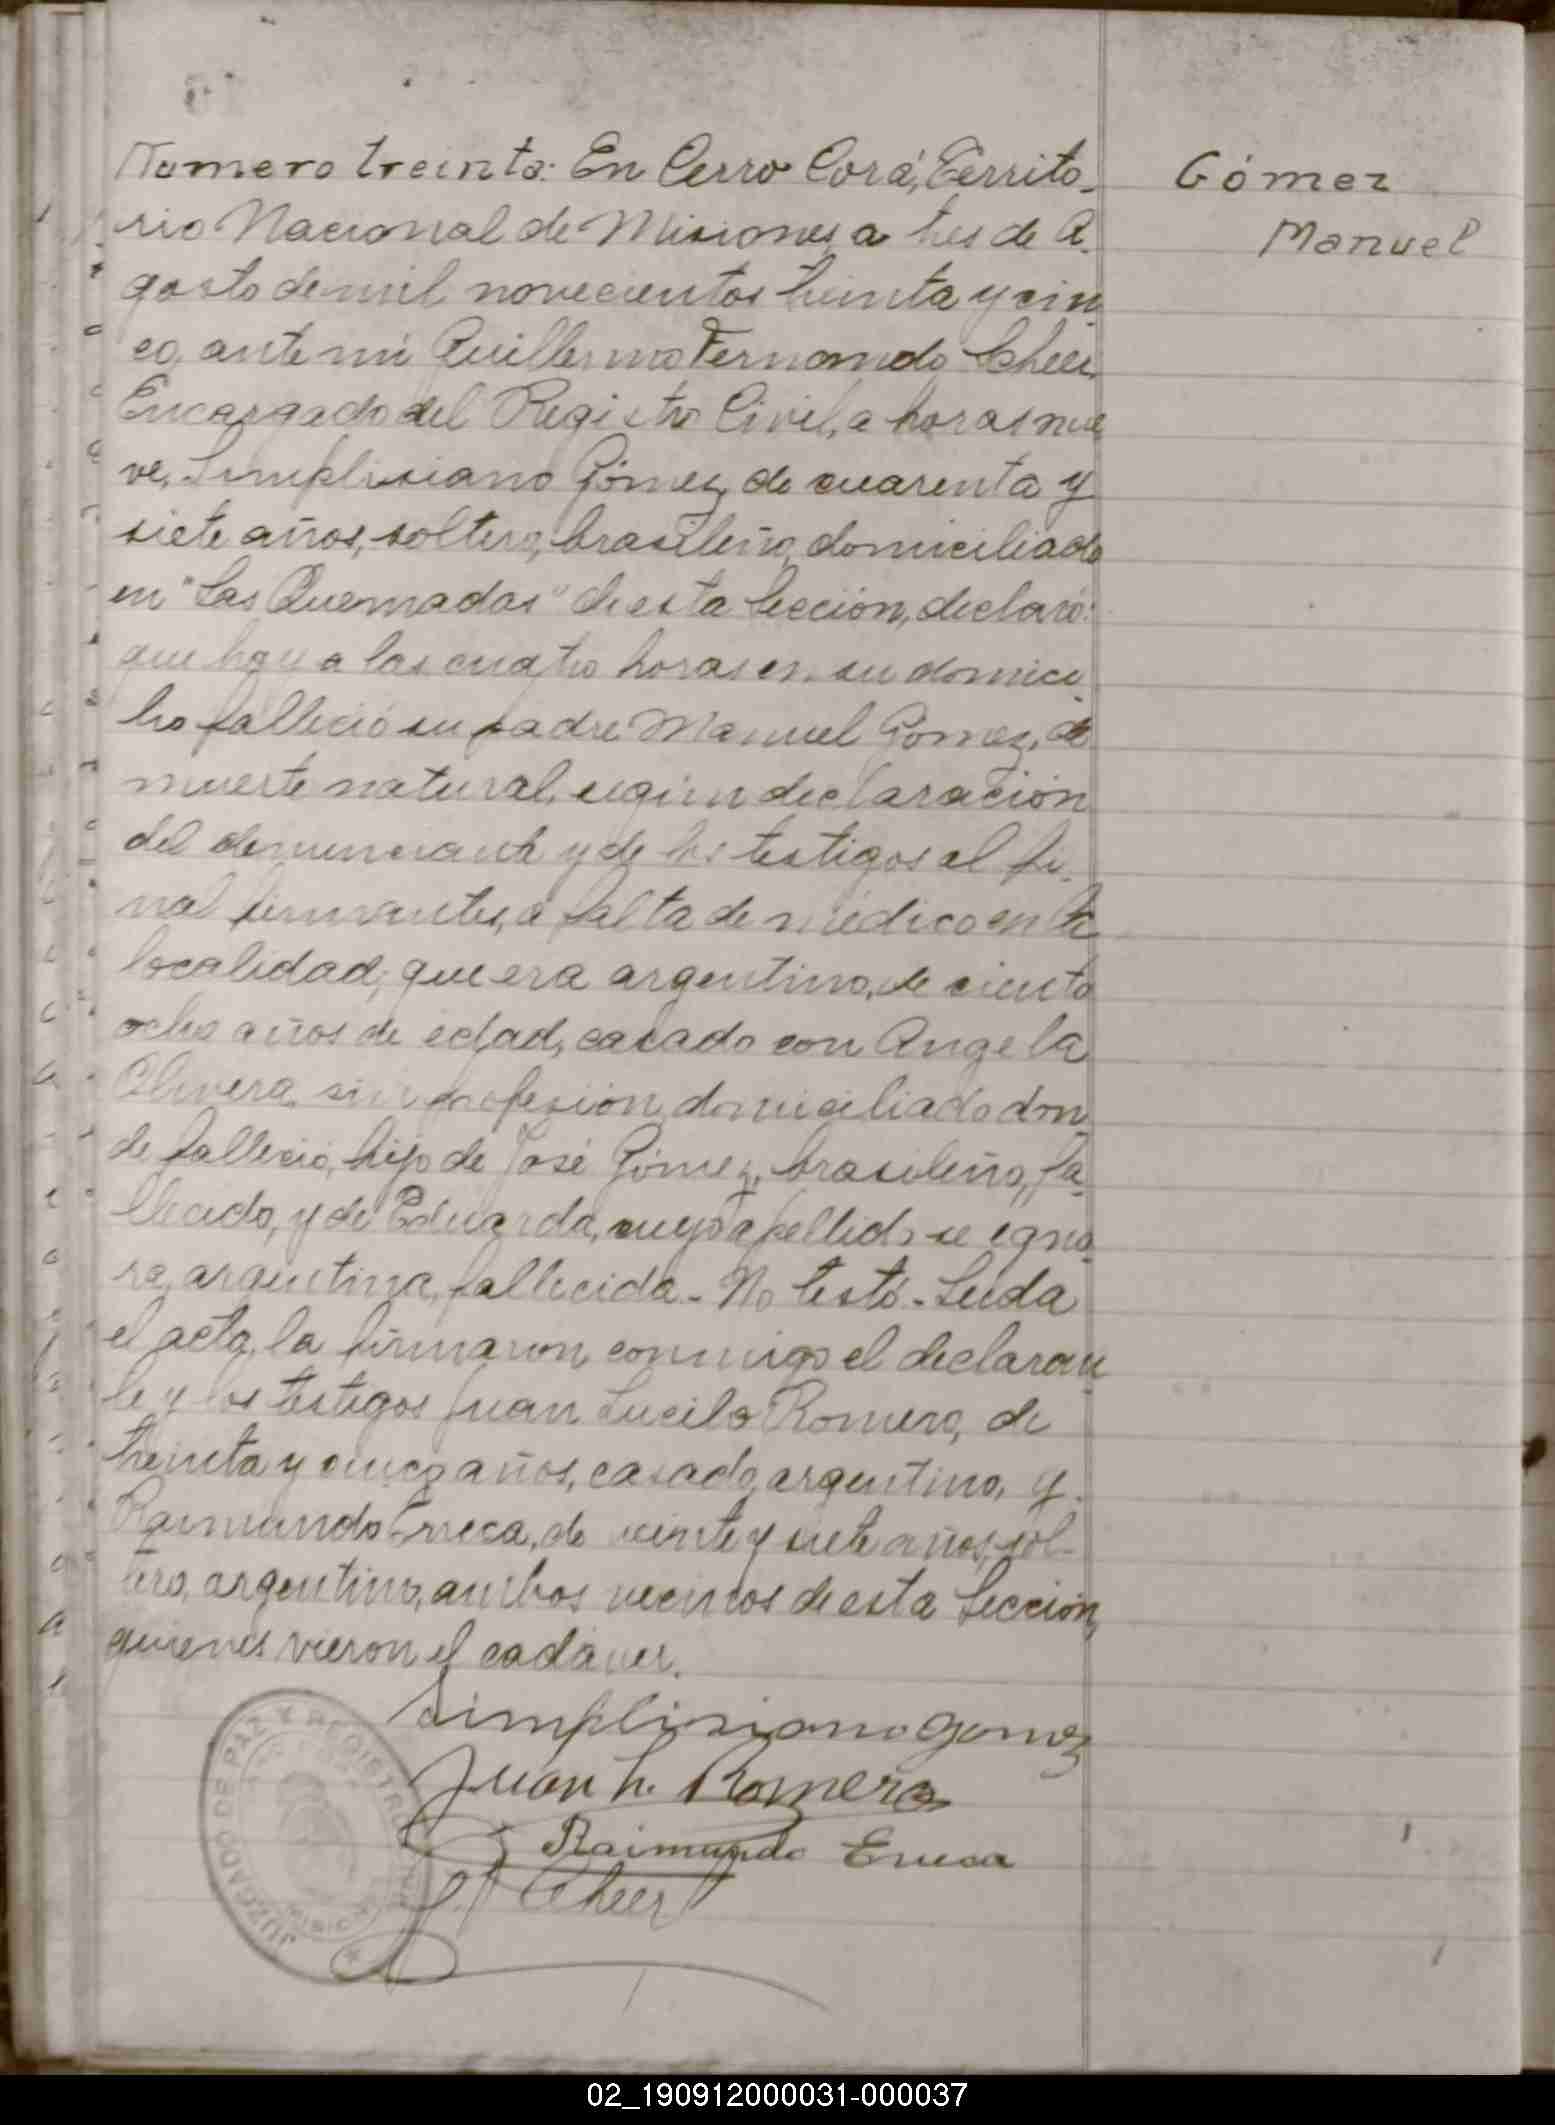 Numero treinta: En Cerro Corá, Territo-
rio Nacional de Misiones, a tres de A-
gosto de mil novecientos treinta y cin-
co, ante mi Guillermo Fernando Scheer,
Encargado del Registro Civil, a horas nue-
ve, Simplisiano Gómez, de cuarenta y
siete años, soltero, brasileño, domiciliado
en "Las Quemadas" de esta Sección, declaró:
que hoy a las cuatro horas en su domici-
lio falleció su padre Manuel Gomez, de
muerte natural, según declaración
del denunciante y de los testigos al fi-
nal firmantes, a falta de médico en la
localidad; que era argentino, de ciento
ocho años de edad, casado con Angela
Olivera, sin profesión, domiciliado don-
de falleció, hijo de José Gómez, brasileño, fa-
llecido, y de Eduarda, cuyo apellido se igno-
ra, argentina, fallecida.- No testó.- Leida
el acta, la firmaron conmigo el declaran-
te y los testigos Juan Lucilo Romero, de
treinta y cinco años, casado, argentino, y
Raimundo de veinte y siete años, sol-
tero, argentino, ambos vecinos de esta Sección,
quienes vieron el cadáver.
Simplisiano Gomez
Juan L. Romero
Raimundo
G. F. Scheer
JUZGADO DE PAZ Y REGISTRO
Gómez
Manuel
02_190912000031-000037